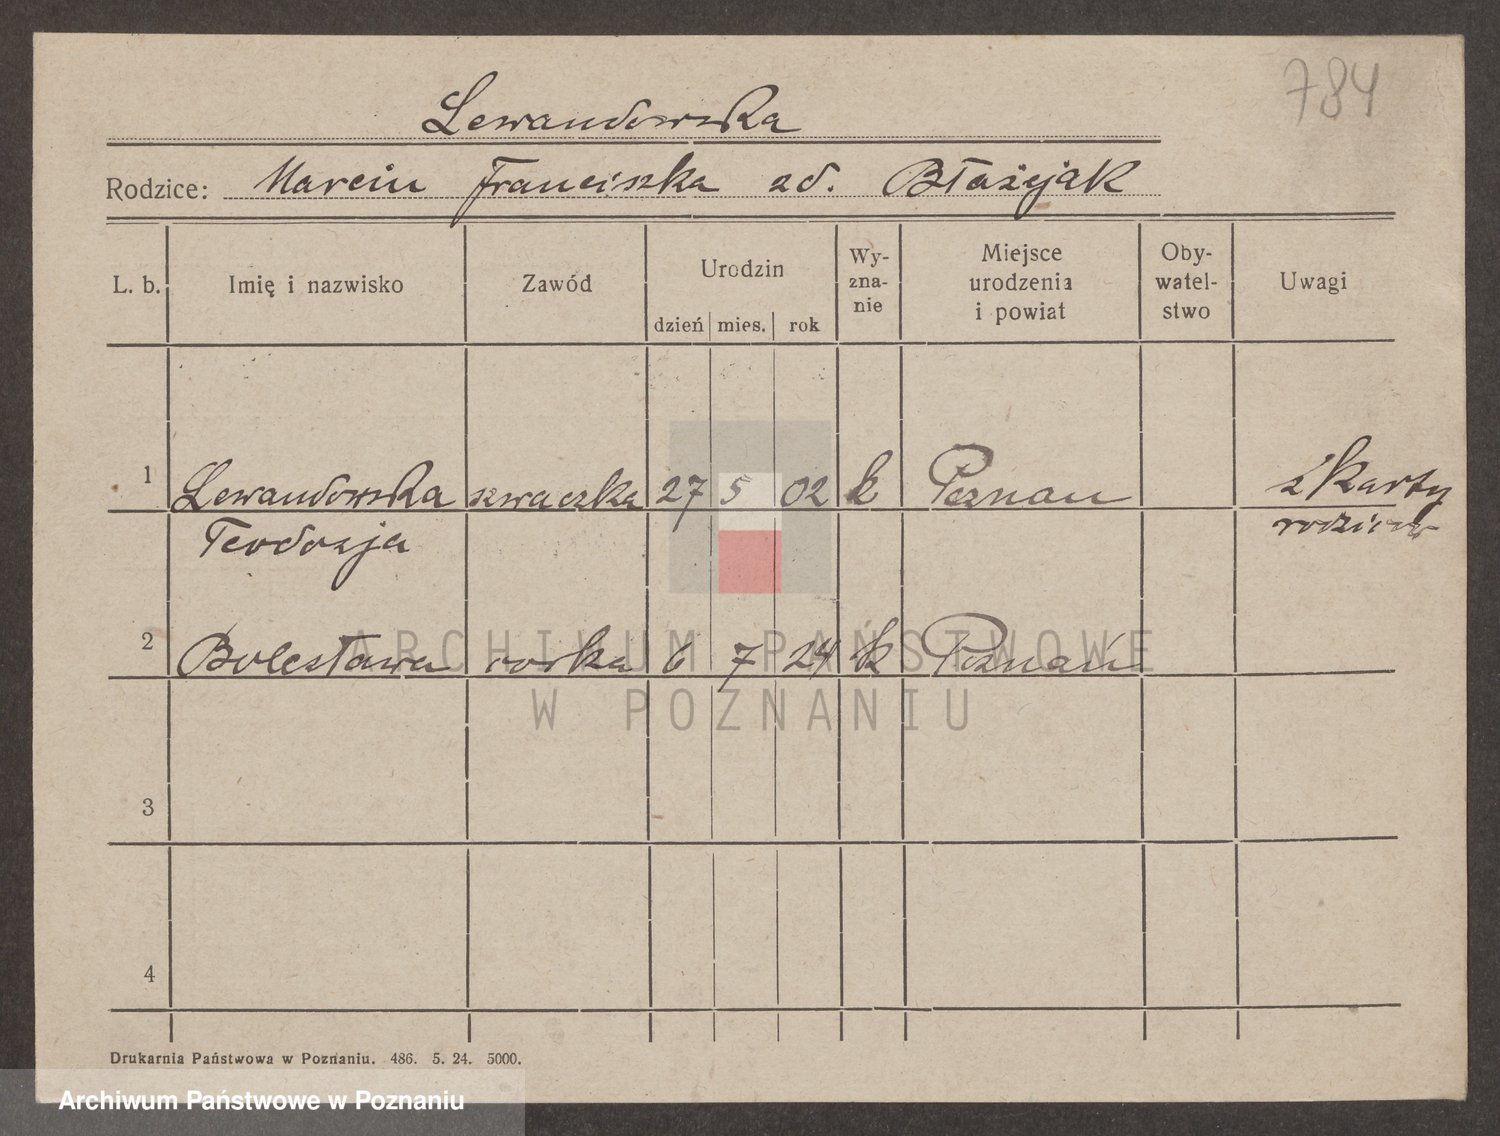 784
Lewandowska
Rodzice: Marcin Franciszka zd. Błażejak
L. b. Imię i nazwisko Zawód Urodzin dzień mies. rok Wy-zna-nie Miejsce urodzenia i powiat Oby-watel-stwo Uwagi
1 Lewandowska szwaczka 27 5 02 k Poznań z karty
Teodozja rodziców
2 Bolesława córka 6 7 24 k Poznań
ARCHIWUM PAŃSTWOWE
W POZNANIU
3
4
Drukarnia Państwowa w Poznaniu. 486. 5. 24. 5000.
Archiwum Państwowe w Poznaniu